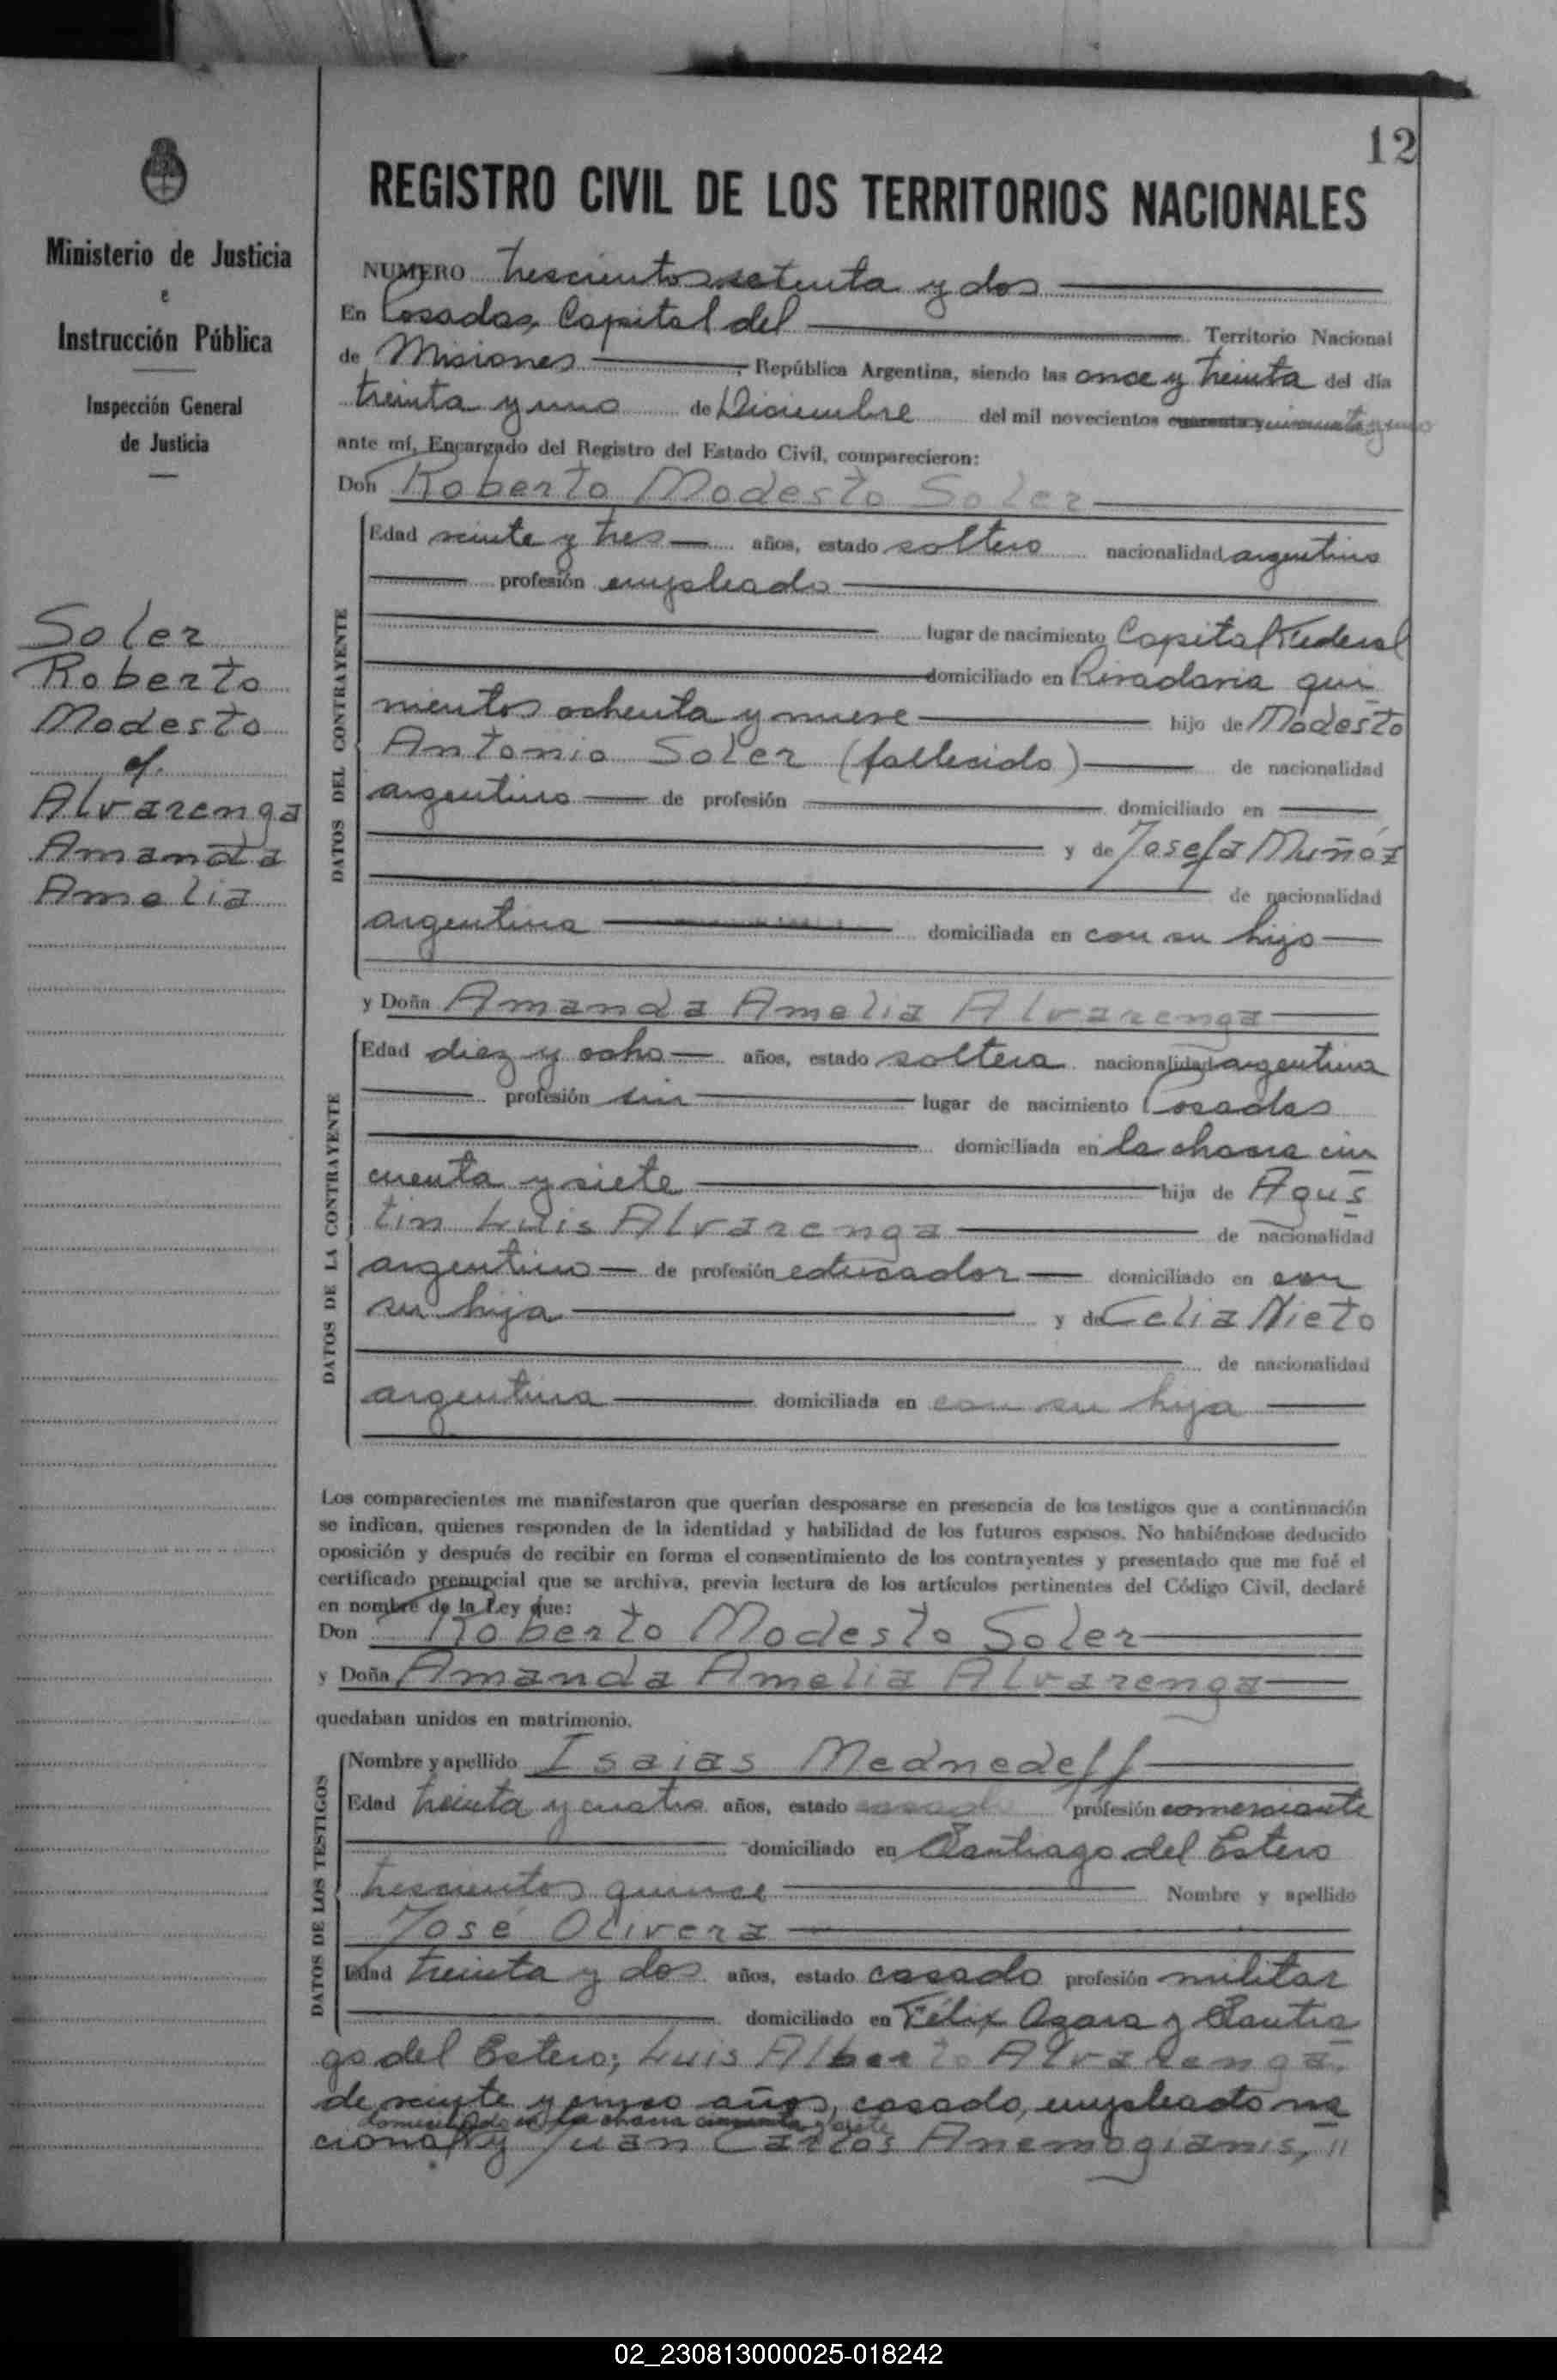 12
Ministerio de Justicia
e
Instrucción Pública
Inspección General
de Justicia
Soler
Roberto
Modesto
c/.
Alvarenga
Amanda
Amelia
REGISTRO CIVIL DE LOS TERRITORIOS NACIONALES
NUMERO trescientos setenta y dos
En Posadas, Capital del Territorio Nacional
de Misiones, República Argentina, siendo las once y treinta del día
treinta y uno de Diciembre del mil novecientos cuarenta y cincuenta y uno
ante mí, Encargado del Registro del Estado Civil, comparecieron:
Don Roberto Modesto Soler
DATOS DEL CONTRAYENTE
Edad veinte y tres años, estado soltero nacionalidad argentino
profesión empleado
lugar de nacimiento Capital Federal
domiciliado en Rivadavia qui
nientos ochenta y nueve hijo de Modesto
Antonio Soler (fallecido) de nacionalidad
argentino de profesión domiciliado en
y de Josefa Muñóz
de nacionalidad
argentina domiciliada en con su hijo
y Doña Amanda Amelia Alvarenga
DATOS DE LA CONTRAYENTE
Edad diez y ocho años, estado soltera nacionalidad argentina
profesión sin lugar de nacimiento Posadas
domiciliada en la chacra cin
cuenta y siete hija de Agus
tin Luis Alvarenga de nacionalidad
argentino de profesión educador domiciliado en con
su hija y de Celia Nieto
de nacionalidad
argentina domiciliada en con su hija
Los comparecientes me manifestaron que querían desposarse en presencia de los testigos que a continuación
se indican, quienes responden de la identidad y habilidad de los futuros esposos. No habiéndose deducido
oposición y después de recibir en forma el consentimiento de los contrayentes y presentado que me fué el
certificado prenupcial que se archiva, previa lectura de los artículos pertinentes del Código Civil, declaré
en nombre de la Ley que:
Don Roberto Modesto Soler
y Doña Amanda Amelia Alvarenga
quedaban unidos en matrimonio.
DATOS DE LOS TESTIGOS
Nombre y apellido Isaias Mednedeff
Edad treinta y cuatro años, estado casado profesión comerciante
domiciliado en Santiago del Estero
trescientos quince Nombre y apellido
José Olivera
Edad treinta y dos años, estado casado profesión militar
domiciliado en Félix Azara y Santia
go del Estero; Luis Alberto Alvarenga,
de veinte y cinco años, casado, empleado na
domiciliado en la chacra cincuenta y siete
cional y Juan Carlos Anemogianis, "
02_230813000025-018242